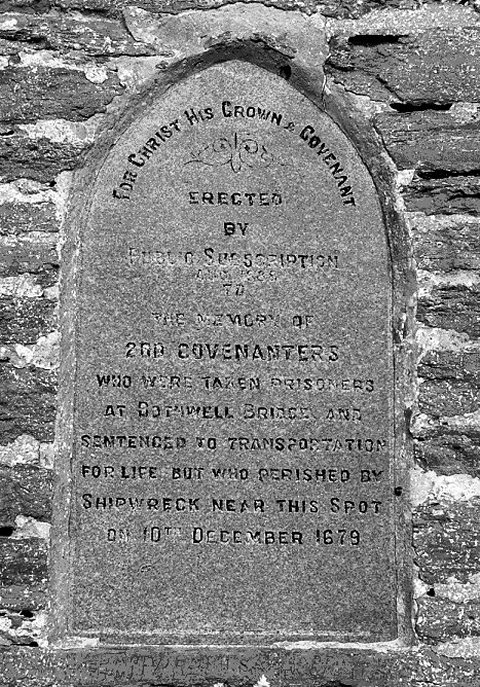 FOR CHRIST HIS CROWN & COVENANT
ERECTED
BY
PUBLIC SUBSCRIPTION
TO
THE MEMORY OF
200 COVENANTERS
WHO WERE TAKEN PRISONERS
AT BOTHWELL BRIDGE, AND
SENTENCED TO TRANSPORTATION
FOR LIFE, BUT WHO PERISHED BY
SHIPWRECK NEAR THIS SPOT
ON 10TH DECEMBER 1679